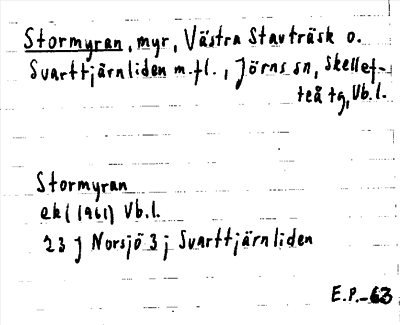 Stormyran, myr, Västra Stavträsk o.
Svarttjärnliden m.fl., Jörns sn, Skellef-
teå tg, Vb.l.
Stormyran
ek (1961) Vb.l.
23 J Norsjö 3 j Svarttjärnliden
E.P.-63